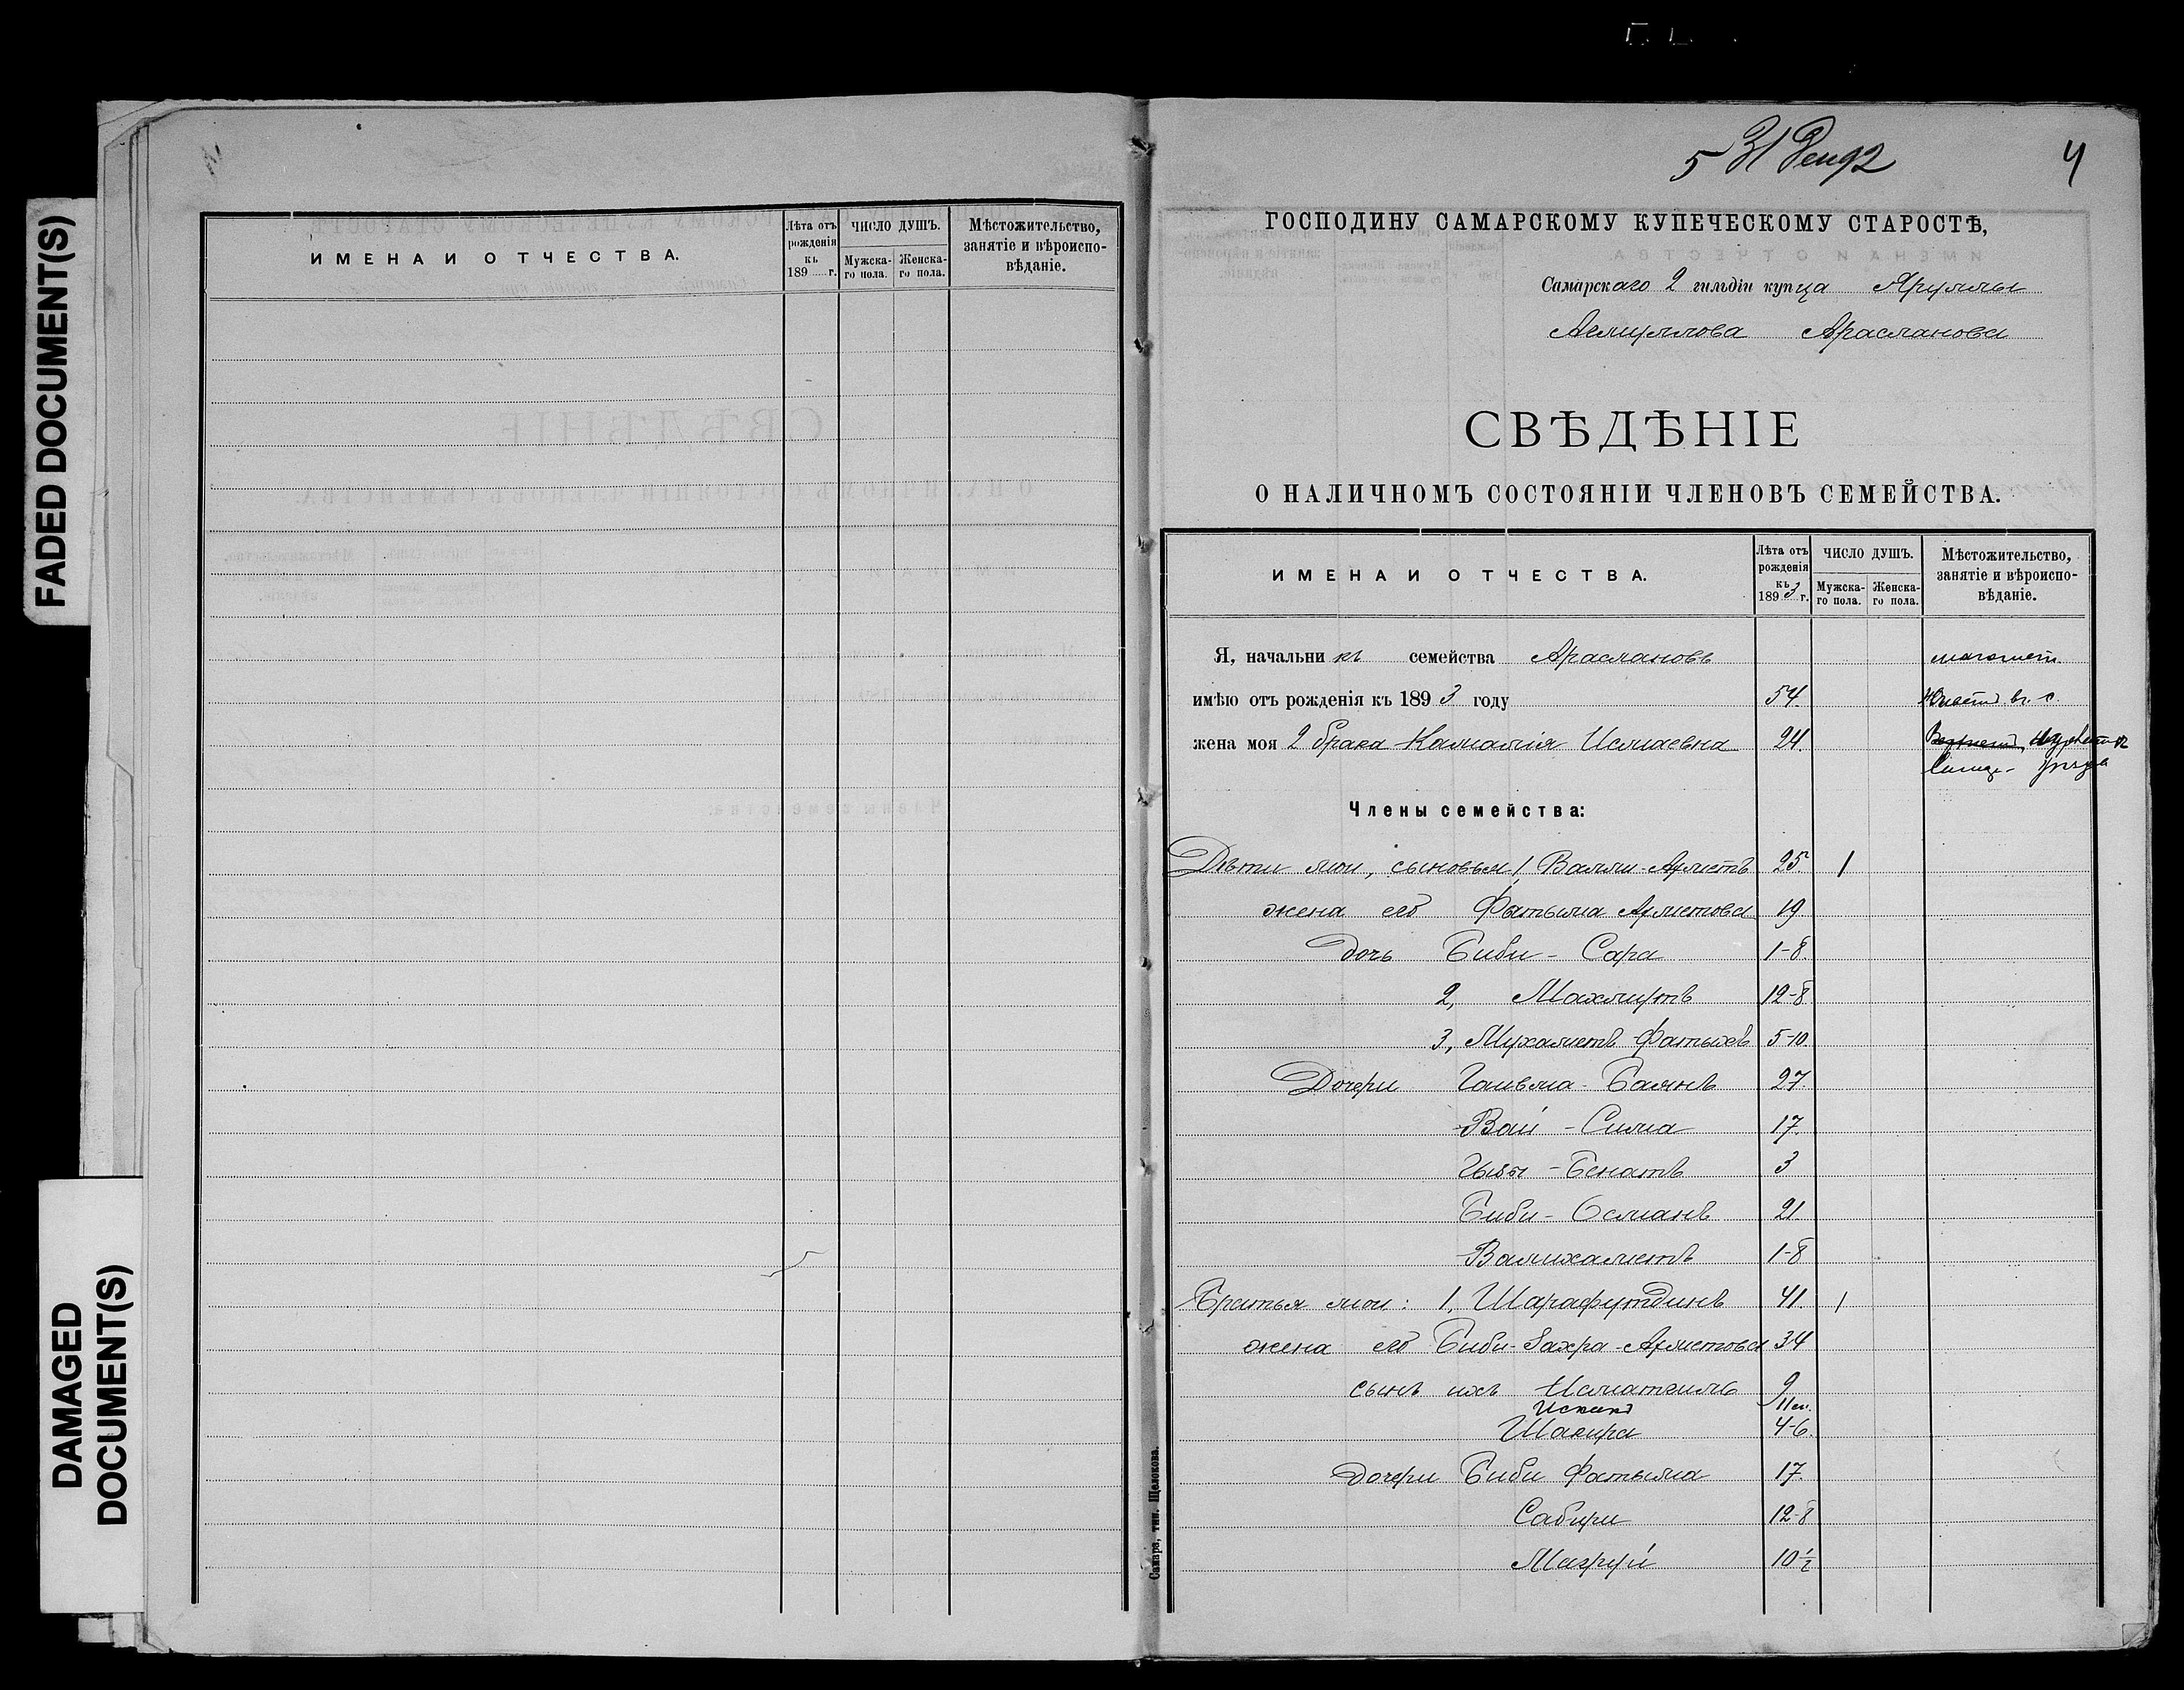 FADED DOCUMENT(S)
DAMAGED
DOCUMENT(S)
ИМЕНА И ОТЧЕСТВА.
Лѣта отъ рожденія къ 189 г.
ЧИСЛО ДУШЪ.
Мужска-го пола.
Женска-го пола.
Мѣстожительство, занятіе и вѣроиспо-вѣданіе.
5 31 Дек 92
4
ГОСПОДИНУ САМАРСКОМУ КУПЕЧЕСКОМУ СТАРОСТѢ,
Самарскаго 2 гильдіи купца
Арасланова
СВѢДѢНІЕ
О НАЛИЧНОМЪ СОСТОЯНІИ ЧЛЕНОВЪ СЕМЕЙСТВА.
ИМЕНА И ОТЧЕСТВА.
Лѣта отъ рожденія къ 1893 г.
ЧИСЛО ДУШЪ.
Мужска-го пола.
Женска-го пола.
Мѣстожительство, занятіе и вѣроиспо-вѣданіе.
Я, начальникъ семейства Араслановъ магомет.
имѣю отъ рожденія къ 1893 году 54.
жена моя 2 брака 24.
Члены семейства:
Дѣти мои, сыновья 1, Валли-Ахметъ 25. 1
жена его Фатыма Ахметова 19
дочь Биби-Сара 1-8.
2, Махмутъ 12-8
3, Мухаметъ Фатыхъ 5-10.
Дочери 27.
17.
3
Биби-Османъ 21.
1-8
Братья мои: 1, Шарафутдинъ 41. 1
жена его Биби-Захра-Ахметова 34
сынъ ихъ 9
11 м.
Шакира 4-6.
дочери Биби Фатыма 17.
Сабири 12-8
Магруй 10½
Самара, тип. Щелокова.